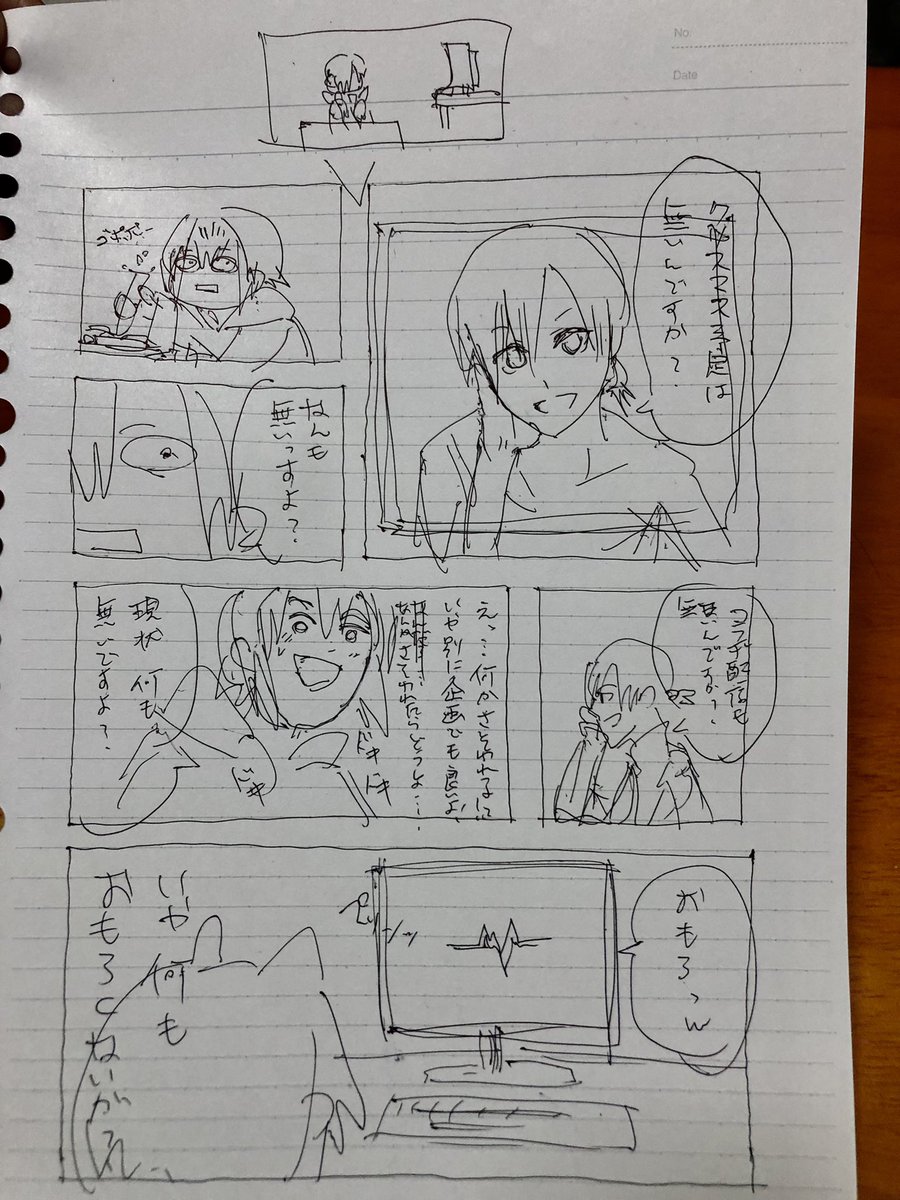 No.
Date
クリスマス予定は
無いんですか?
なんも
無いっすよ?
コラボ配信も
無いんですか?
えっ…何かさそわれてるに
いや別に企画でも良いよ、
さそわれたらどうしよ…
ドキ
ドキ
ドキ
現状 何も
無いですよ?
おもろっw
いや 何も
おもろくないが